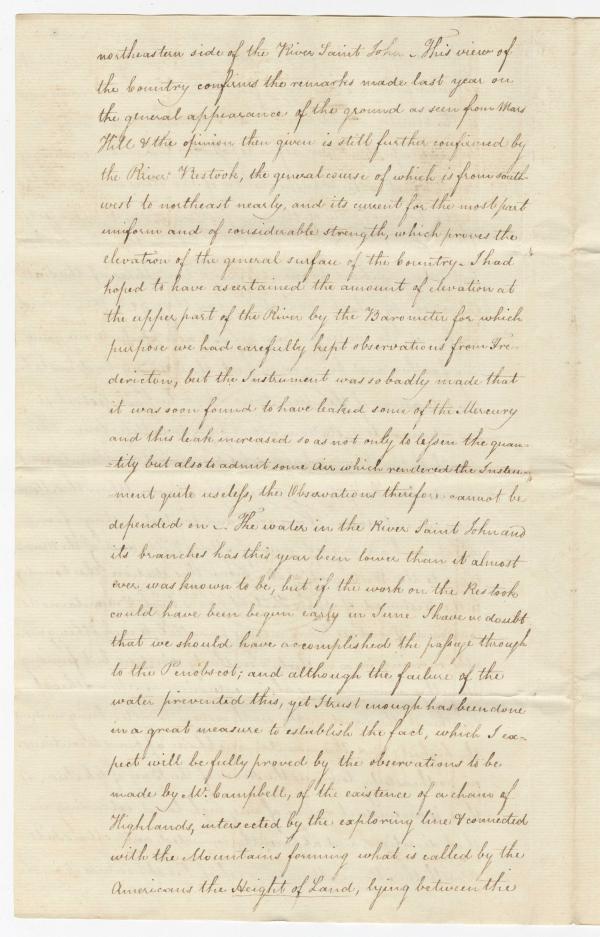 northeastern side of the River Saint John. This view of
the Country confirms the remarks made last year on
the general appearance of the ground as seen from Mars
Hill & the opinion then given is still further confirmed by
the River Restook, the general course of which is from south-
west to northeast nearly, and its current for the most part
uniform and of considerable strength, which proves the
elevation of the general surface of the Country. I had
hoped to have ascertained the amount of elevation at
the upper part of the River by the Barometer for which
purpose we had carefully kept observations from Fre-
dericton, but the Instrument was so badly made that
it was soon found to have leaked some of the Mercury
and this leak increased so as not only to lessen the quan-
-tity but also to admit some air which rendered the Instru-
ment quite useless, the Observations therefore cannot be
depended on. The water in the River Saint John and
its branches has this year been lower than it almost
ever was known to be, but if the work on the Restook
could have been begun early in June I have no doubt
that we should have accomplished the passage through
to the Penobscot; and although the failure of the
water prevented this, yet I trust enough has been done
in a great measure to establish the fact, which I ex-
pect will be fully proved by the observations to be
made by Mr. Campbell, of the existence of a chain of
Highlands, intersected by the exploring line & connected
with the Mountains forming what is called by the
Americans the Height of Land, lying between the